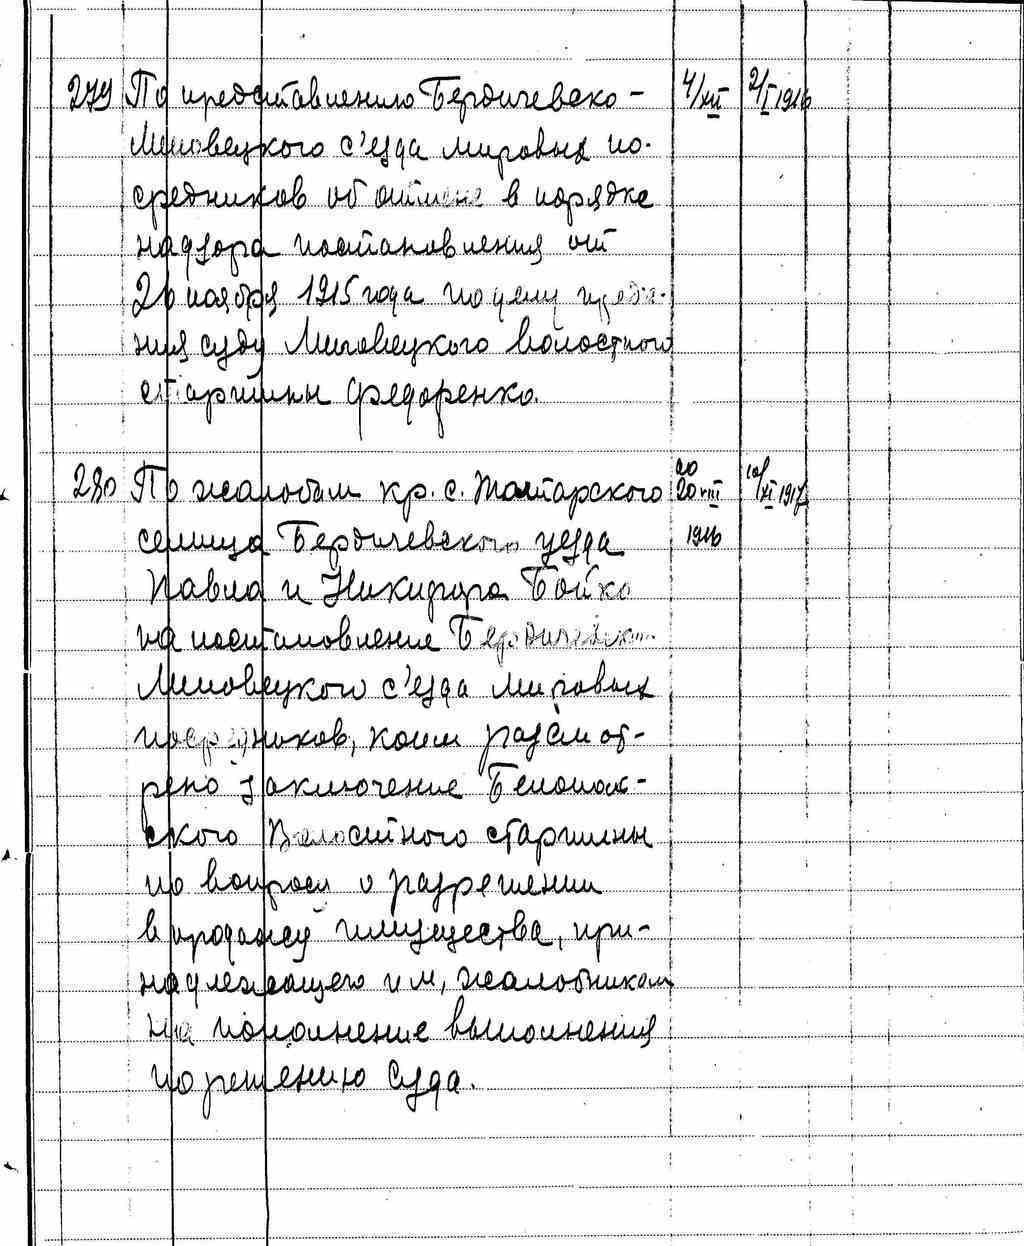 279 По представлению Бердичевско- 4/XII 2/I 1916
Липовецкого с'езда мировых по-
средников об отмене в порядке
надзора постановления от
26 ноября 1915 года по делу преда-
ния суду Липовецкого волостного
старшины Федоренко.
280 По жалобам кр. с. Жатарского 20 VIII XI 1917
селища Бердичевского уезда 1916
Павла и Никифора Бойко
на постановление Бердичевско-
Липовецкого с'езда мировых
посредников, коим рассмот-
рено заключение Белополь-
ского Волостного старшины
по вопросу о разрешении
в продажу имущества, при-
надлежащего им, жалобникам
на пополнение выполнения
по решению суда.